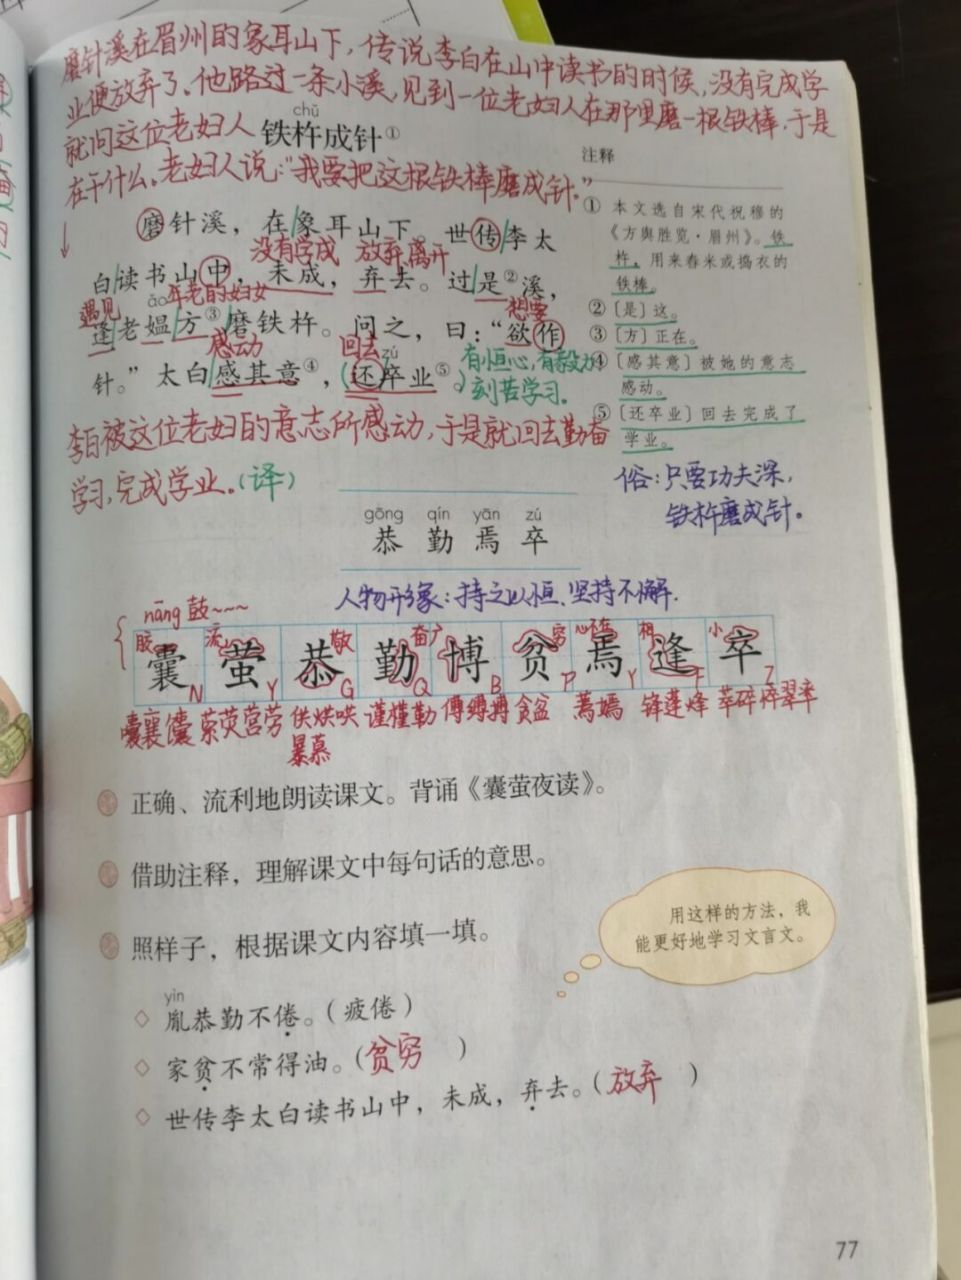 磨针溪在眉州的象耳山下，传说李白在山中读书的时候，没有完成学
业便放弃了。他路过一条小溪，见到一位老妇人在那里磨一根铁棒，于是
就问这位老妇人
chǔ
铁杵成针①
在干什么。老妇人说："我要把这根铁棒磨成针。"
磨针溪，在象耳山下。世传李太
没有学成 放弃离开
白读书山中，未成，弃去。过是②溪，
遇见
ǎo
年老的妇女
想要
逢老媪方③磨铁杵。问之，曰："欲作
感动
回去
zú
针。"太白感其意④，还卒业⑤。
有恒心，有毅力，
刻苦学习。
李白被这位老妇的意志所感动，于是就回去勤奋
学习，完成学业。(译)
注释
① 本文选自宋代祝穆的
《方舆胜览·眉州》。铁
杵，用来舂米或捣衣的
铁棒。
② 〔是〕这。
③ 〔方〕正在。
④ 〔感其意〕被她的意志
感动。
⑤ 〔还卒业〕回去完成了
学业。
俗：只要功夫深，
铁杵磨成针。
gōng qín yān zú
恭 勤 焉 卒
人物形象：持之以恒、坚持不懈.
nāng 鼓~~~
胶 流 敬 奋 穷 心不在 相 小
囊 萤 恭 勤 博 贫 焉 逢 卒
N Y G Q B P Y F Z
囔襄馕 萦荧营劳 供烘哄 谨槿勒 傅缚搏 贪盆 蔫嫣 锋蓬烽 萃碎粹翠率
暴慕
正确、流利地朗读课文。背诵《囊萤夜读》。
借助注释，理解课文中每句话的意思。
照样子，根据课文内容填一填。
用这样的方法，我
能更好地学习文言文。
yìn
◇ 胤恭勤不倦。（疲倦）
◇ 家贫不常得油。（贫穷 ）
◇ 世传李太白读书山中，未成，弃去。（放弃 ）
77